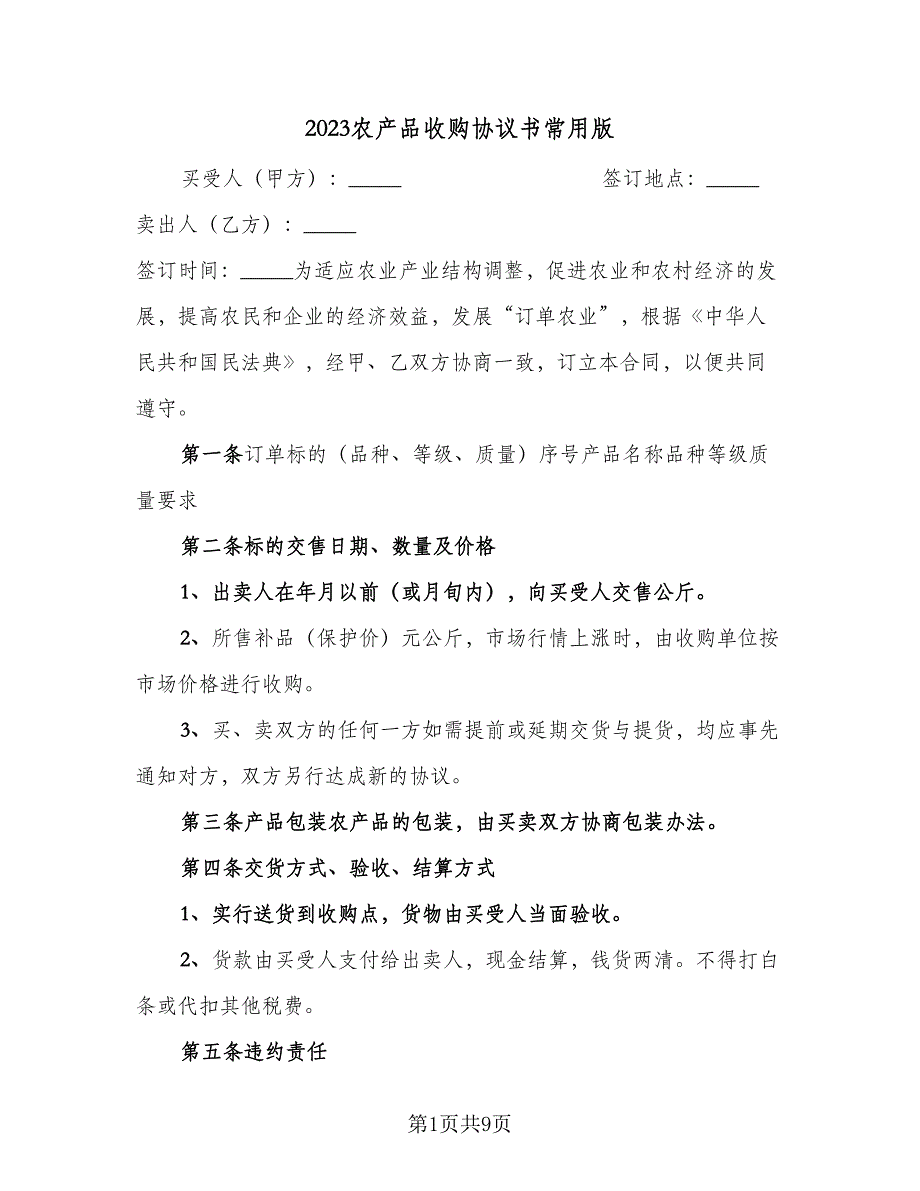 2023农产品收购协议书常用版
买受人（甲方）：_____ 签订地点：_____
卖出人（乙方）：_____
签订时间：_____为适应农业产业结构调整，促进农业和农村经济的发
展，提高农民和企业的经济效益，发展“订单农业”，根据《中华人
民共和国民法典》，经甲、乙双方协商一致，订立本合同，以便共同
遵守。
第一条订单标的（品种、等级、质量）序号产品名称品种等级质
量要求
第二条标的交售日期、数量及价格
1、出卖人在年月以前（或月旬内），向买受人交售公斤。
2、所售补品（保护价）元公斤，市场行情上涨时，由收购单位按
市场价格进行收购。
3、买、卖双方的任何一方如需提前或延期交货与提货，均应事先
通知对方，双方另行达成新的协议。
第三条产品包装农产品的包装，由买卖双方协商包装办法。
第四条交货方式、验收、结算方式
1、实行送货到收购点，货物由买受人当面验收。
2、货款由买受人支付给出卖人，现金结算，钱货两清。不得打白
条或代扣其他税费。
第五条违约责任
第1页共9页